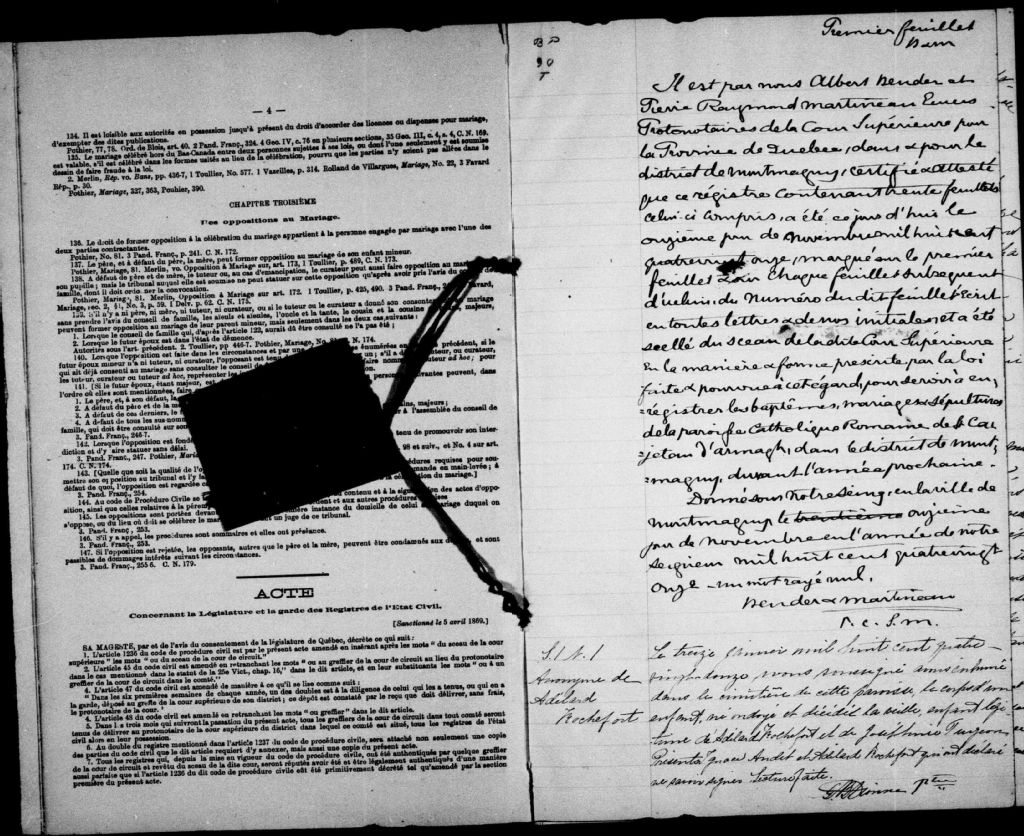 — 4 —
134. Il est loisible aux autorités en possession jusqu'à présent du droit d'accorder des licences ou dispenses pour mariage,
d'exempter des dites publications.
Pothier, 77, 78. Ord. de Blois, art. 40. 2 Pand. Franç., 324. 4 Geo. IV, c. 76 en plusieurs sections, 35 Geo. III, c. 4, s. 4, C. N. 169.
135. Le mariage célébré hors du Bas-Canada entre deux personnes sujettes à ses lois, ou dont l'une seulement y est soumise
est valable, s'il est célébré dans les formes usitées au lieu de la célébration, pourvu que les parties n'y soient pas allées dans le
dessin de faire fraude à la loi.
2. Merlin, Rép. vo. Bans, pp. 436-7, 1 Toullier, No. 577. 1 Vazeilles, p. 314. Rolland de Villargues, Mariage, No. 22, 3 Favard
Rép., p. 30.
Pothier, Mariage, 327, 363, Pouhier, 390.
CHAPITRE TROISIÈME
Des oppositions au Mariage.
136. Le droit de former opposition à la célébration du mariage appartient à la personne engagée par mariage avec l'une des
deux parties contractantes.
Pothier, No. 81. 3 Pand. Franç., p. 241. C. N. 172.
137. Le père, et à défaut du père, la mère, peut former opposition au mariage de son enfant mineur.
Pothier, Mariage, 81. Merlin, vo. Opposition à Mariage sur art. 173, 1 Toullier, p. 489, C. N. 173.
138. A défaut de père et de mère, le tuteur ou, au cas d'émancipation, le curateur peut aussi faire opposition au mariage de
son pupille; mais le tribunal auquel elle est soumise ne peut statuer sur cette opposition qu'après avoir pris l'avis du conseil de
famille, dont il doit ordonner la convocation.
Pothier, Mariage, 81. Merlin, Opposition à Mariage sur art. 172. 1 Toullier, p. 425, 490. 3 Pand. Franç., Favard,
Mariage, sec. 2, §1, No. 3, p. 59. 1 Delv. p. 62. C. N. 175.
139. S'il n'y a ni père, ni mère, ni tuteur, ni curateur, ou si le tuteur ou le curateur a donné son consentement au mariage
sans prendre l'avis du conseil de famille, les aïeuls et aïeules, l'oncle et la tante, le cousin et la cousine germains, majeurs,
peuvent former opposition au mariage de leur parent mineur, mais seulement dans les deux cas suivants:
1. Lorsque le conseil de famille qui, d'après l'article 122, aurait dû être consulté ne l'a pas été;
2. Lorsque le futur époux est dans l'état de démence.
Autorités sous l'art. précédent. 2 Toullier, pp. 446-7. Pothier, Mariage, No. C. N. 174.
140. Lorsque l'opposition est faite dans les circonstances et par une énumérées en précédent, si le
futur époux mineur n'a ni tuteur, ni curateur, l'opposant est tenu un; s'il a tuteur, ou curateur,
qui ait déjà consenti au mariage sans consulter le conseil de faire nommer tuteur ad hoc; pour
les tuteur, curateur, ou tuteur ad hoc, représenter les
141. [Si le futur époux, étant majeur, est personnes suivantes peuvent, dans
l'ordre où elles sont mentionnées, faire
1. Le père, et, à son défaut,
2. A défaut du père et de la germains, majeurs;
3. A défaut de ces derniers, le à l'assemblée du conseil de
4. A défaut de tous les
famille, qui doit être consulté sur
3. Pand. Franç., 246-7.
142. Lorsque l'opposition est tenu de promouvoir son interdiction
diction et d'y aire statuer sans délai.
3. Pand. Franç., 247. Pothier, 98 et suiv., et No. 4 sur art.
174. C. N. 174.
143. [Quelle que soit la qualité de procédures requises pour
mettre son opposition au tribunal et demande en main-levée; à
défaut de quoi, l'opposition est regardée célébration du mariage.]
3. Pand. Franç., 254.
144. Au code de Procédure Civile se contenu et à la signification des actes d'opposition,
sition, ainsi que celles relatives à la et aux autres procédures requises
145. Les oppositions sont portées première instance du domicile de celui au mariage duquel on
s'oppose, ou du lieu où doit se célébrer le un juge de ce tribunal.
3. Pand. Franç., 253.
146. S'il y a appel, les procédures sont sommaires et elles ont préséance.
3. Pand. Franç., 253.
147. Si l'opposition est rejetée, les opposants, autres que le père et la mère, peuvent être condamnés aux et sont
passibles de dommages intérêts suivant les circonstances.
3. Pand. Franç., 255 6. C. N. 179.
ACTE
Concernant la Législature et la garde des Registres de l'Etat Civil.
[Sanctionné le 5 avril 1869.]
SA MAGESTÉ, par et de l'avis du consentement de la législature de Québec, décrète ce qui suit:
1. L'article 1236 du code de procédure civile est par le présent acte amendé en insérant après les mots " du sceau de la cour
supérieure " les mots " ou du sceau de la cour de circuit."
2. L'article 45 du code civil est amendé en retranchant les mots " ou au greffier de la cour de circuit au lieu du protonotaire
dans le cas mentionné dans le statut de la 25e Vict., chap. 16," dans le dit article, et en leur substituant les mots "ou à un
greffier de la cour de circuit dans le comté."
4. L'article 47 du code civil est amendé de manière à ce qu'il se lise comme suit:
" Dans les six premières semaines de chaque année, un des doubles est à la diligence de celui qui les a tenus, ou qui en a
la garde, déposé au greffe de la cour supérieure de son district; ce dépôt est constaté par le reçu que doit délivrer, sans frais,
le protonotaire de la cour."
4. L'article 53 du code civil est amendé en retranchant les mots "ou greffier" dans le dit article.
5. Dans les trois mois qui suivront la passation du présent acte, tous les greffiers de la cour de circuit dans tout comté seront
tenus de délivrer au protonotaire de la cour supérieur du district dans lequel tel comté est situé, tous les registres de l'état
civil alors en leur possession.
6. Au double du registre mentionné dans l'article 1237 du code de procédure civile, sera attaché non seulement une copie
des parties du code civil que le dit article requiert d'y annexer, mais aussi une copie du présent acte.
7. Tous les registres qui, depuis la mise en vigueur du code de procédure civile, ont été authentiqués par quelque greffier
de la cour de circuit et revêtu du sceau de la dite cour, seront réputés avoir été et être légalement authentiqués d'une manière
aussi parfaite que si l'article 1236 dit code de procédure civile eût été primitivement décrété tel qu'amendé par la section
première du présent acte.
Premier feuillet
B&m
Il est par nous Albert Bender et
Pierre Raymond Martineau Ecuiers
Protonotaires de la Cour Supérieure pour
la Province de Quebec, dans & pour le
district de Montmagny, certifié & attesté
que ce régistre contenant trente feuillets
celui-ci compris, a été ce jour d'hui le
onzième jour de Novembre mil huit cent
quatrevingt onze, marqué sur le premier
feuillet & sur chaque feuillet subsequent
d'icelui, du Numéro du dit feuillet écrit
en toutes lettres & de nos initiales et a été
scellé du sceau de la dite Cour Supérieure
En la manière & forme prescrite par la loi
faite & pourvue à cet égard, pour servir à en-
-régistrer les baptêmes, mariages & sépultures
de la paroisse Catholique Romaine de St Ca-
jetan d'Armagh, dans le district de Mont-
magny, durant l'année prochaine.
Donné sous notre seing, en la ville de
Montmagny, le onzième
jour de Novembre en l'année de notre
Seigneur mil huit cent quatrevingt
onze - un mot rayé nul.
Bender & Martineau
P. C. S. M.
S. 1 N. 1
Anonyme de
Adélard
Rochefort
Le treize janvier mil huit cent quatre-
vingt-douze, nous soussigné avons inhumé
dans le cimetière de cette paroisse, le corps d'un
enfant, né ondoyé et décédé la veille, enfant légi-
time de Adélard Rochefort et de Joséphine Turgeon.
Présents Audet et Adélard Rochefort qui ont déclaré
ne savoir signer. Lecture faite.
Dionne Ptre